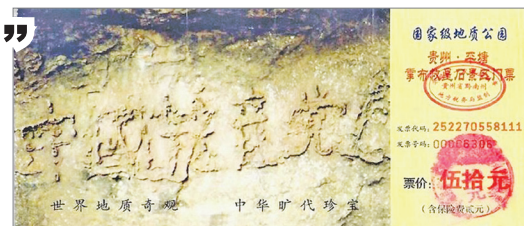 中國共產党
世界地质奇观 中华旷代珍宝
国家级地质公园
贵州·平塘
掌布 景区门票
发票代码:252270558111
发票号码:00006306
票价:伍拾元
(含保险费贰元)